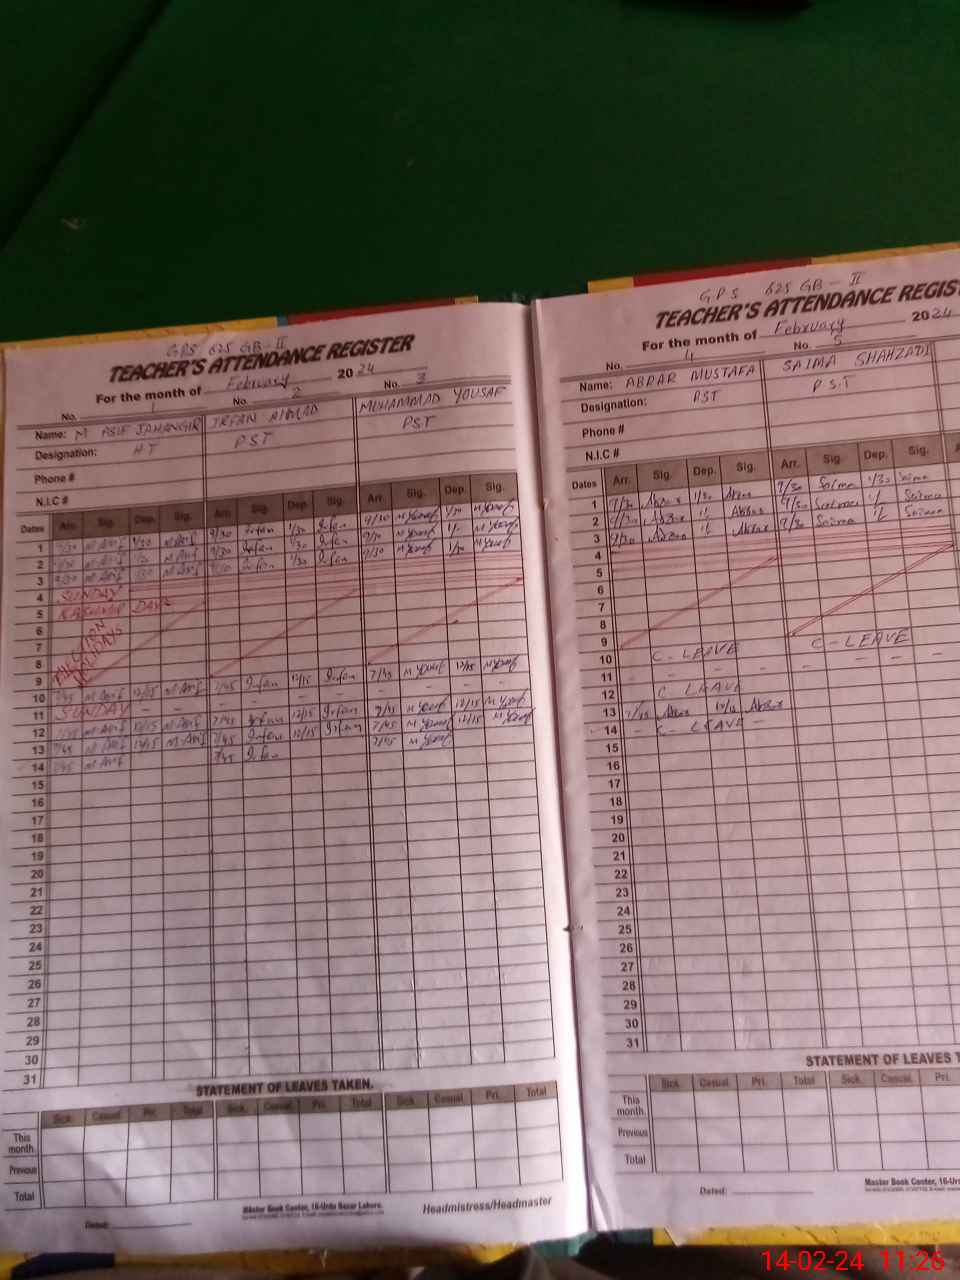 GPS 625 GB-II
TEACHER'S ATTENDANCE REGISTER
For the month of February 2024
No. 1 No. 2 No. 3
Name: M ASIF JAHANGIR IRFAN AHMAD MUHAMMAD YOUSAF
Designation: HT PST PST
Phone #
N.I.C #
Dates Arr. Sig. Dep. Sig. Arr. Sig. Dep. Sig. Arr. Sig. Dep. Sig.
1 9/30 M Asif 1/30 M Asif 9/30 Irfan 1/30 Irfan 9/30 M Yousf 1/30 M Yousf
2 9/30 M Asif M Asif 9/30 Irfan 1/30 Irfan 9/30 M Yousf 1/ M Yousf
3 9/30 M Asif M Asif 9/30 Irfan 1/30 Irfan 9/30 M Yousf 1/30 M Yousf
4 SUNDAY
5 KASHMIR DAY
6 ELECTION
7 HOLIDAYS
8
9
10 7/45 M Asif 12/15 M Asif 7/45 Irfan 12/15 Irfan 7/45 M Yousf 12/15 M Yousf
11 SUNDAY - - - - - - - - -
12 7/45 M Asif 12/15 M Asif 7/45 Irfan 12/15 Irfan 7/45 M Yousf 12/15 M Yousf
13 7/45 M Asif 12/15 M Asif 7/45 Irfan 12/15 Irfan 7/45 M Yousf 12/15 M Yousf
14 7/45 M Asif 7/45 Irfan 7/45 M Yousf
15
16
17
18
19
20
21
22
23
24
25
26
27
28
29
30
31
STATEMENT OF LEAVES TAKEN.
Sick. Casual Pri. Total Sick. Casual. Pri. Total Sick. Casual. Pri. Total
This month.
Previous
Total
Dated:
Master Book Center, 16-Urdu Bazar Lahore.
Headmistress/Headmaster
GPS 625 GB-II
TEACHER'S ATTENDANCE REGIS
For the month of February 2024
No. 4 No. 5
Name: ABRAR MUSTAFA SAIMA SHAHZADI
Designation: PST P.S.T
Phone #
N.I.C #
Dates Arr. Sig. Dep. Sig. Arr. Sig. Dep. Sig. A
1 9/30 Abrar 1/30 Abrar 9/30 Saima 1/30 Saima
2 9/30 Abrar 11 Abrar 9/30 Saima 11 Saima
3 9/30 Abrar 11 Abrar 9/30 Saima 11 Saima
4
5
6
7
8
9
10 C-LEAVE C-LEAVE
11 - - - - - - - -
12 C-LEAVE
13 7/45 Abrar 12/15 Abrar
14 - C-LEAVE -
15
16
17
18
19
20
21
22
23
24
25
26
27
28
29
30
31
STATEMENT OF LEAVES T
Sick. Casual Pri. Total Sick. Casual. Pri.
This month.
Previous
Total
Dated:
Master Book Center, 16-Urd
14-02-24 11:26